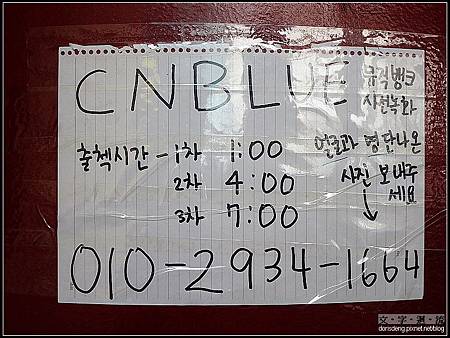 CNBLUE 뮤직뱅크
사전녹화
출첵시간 - 1차 1:00
2차 4:00
3차 7:00
얼굴과 명단나온
사진 보내주
세요
010-2934-1664
dorisdeng.pixnet.net/blog